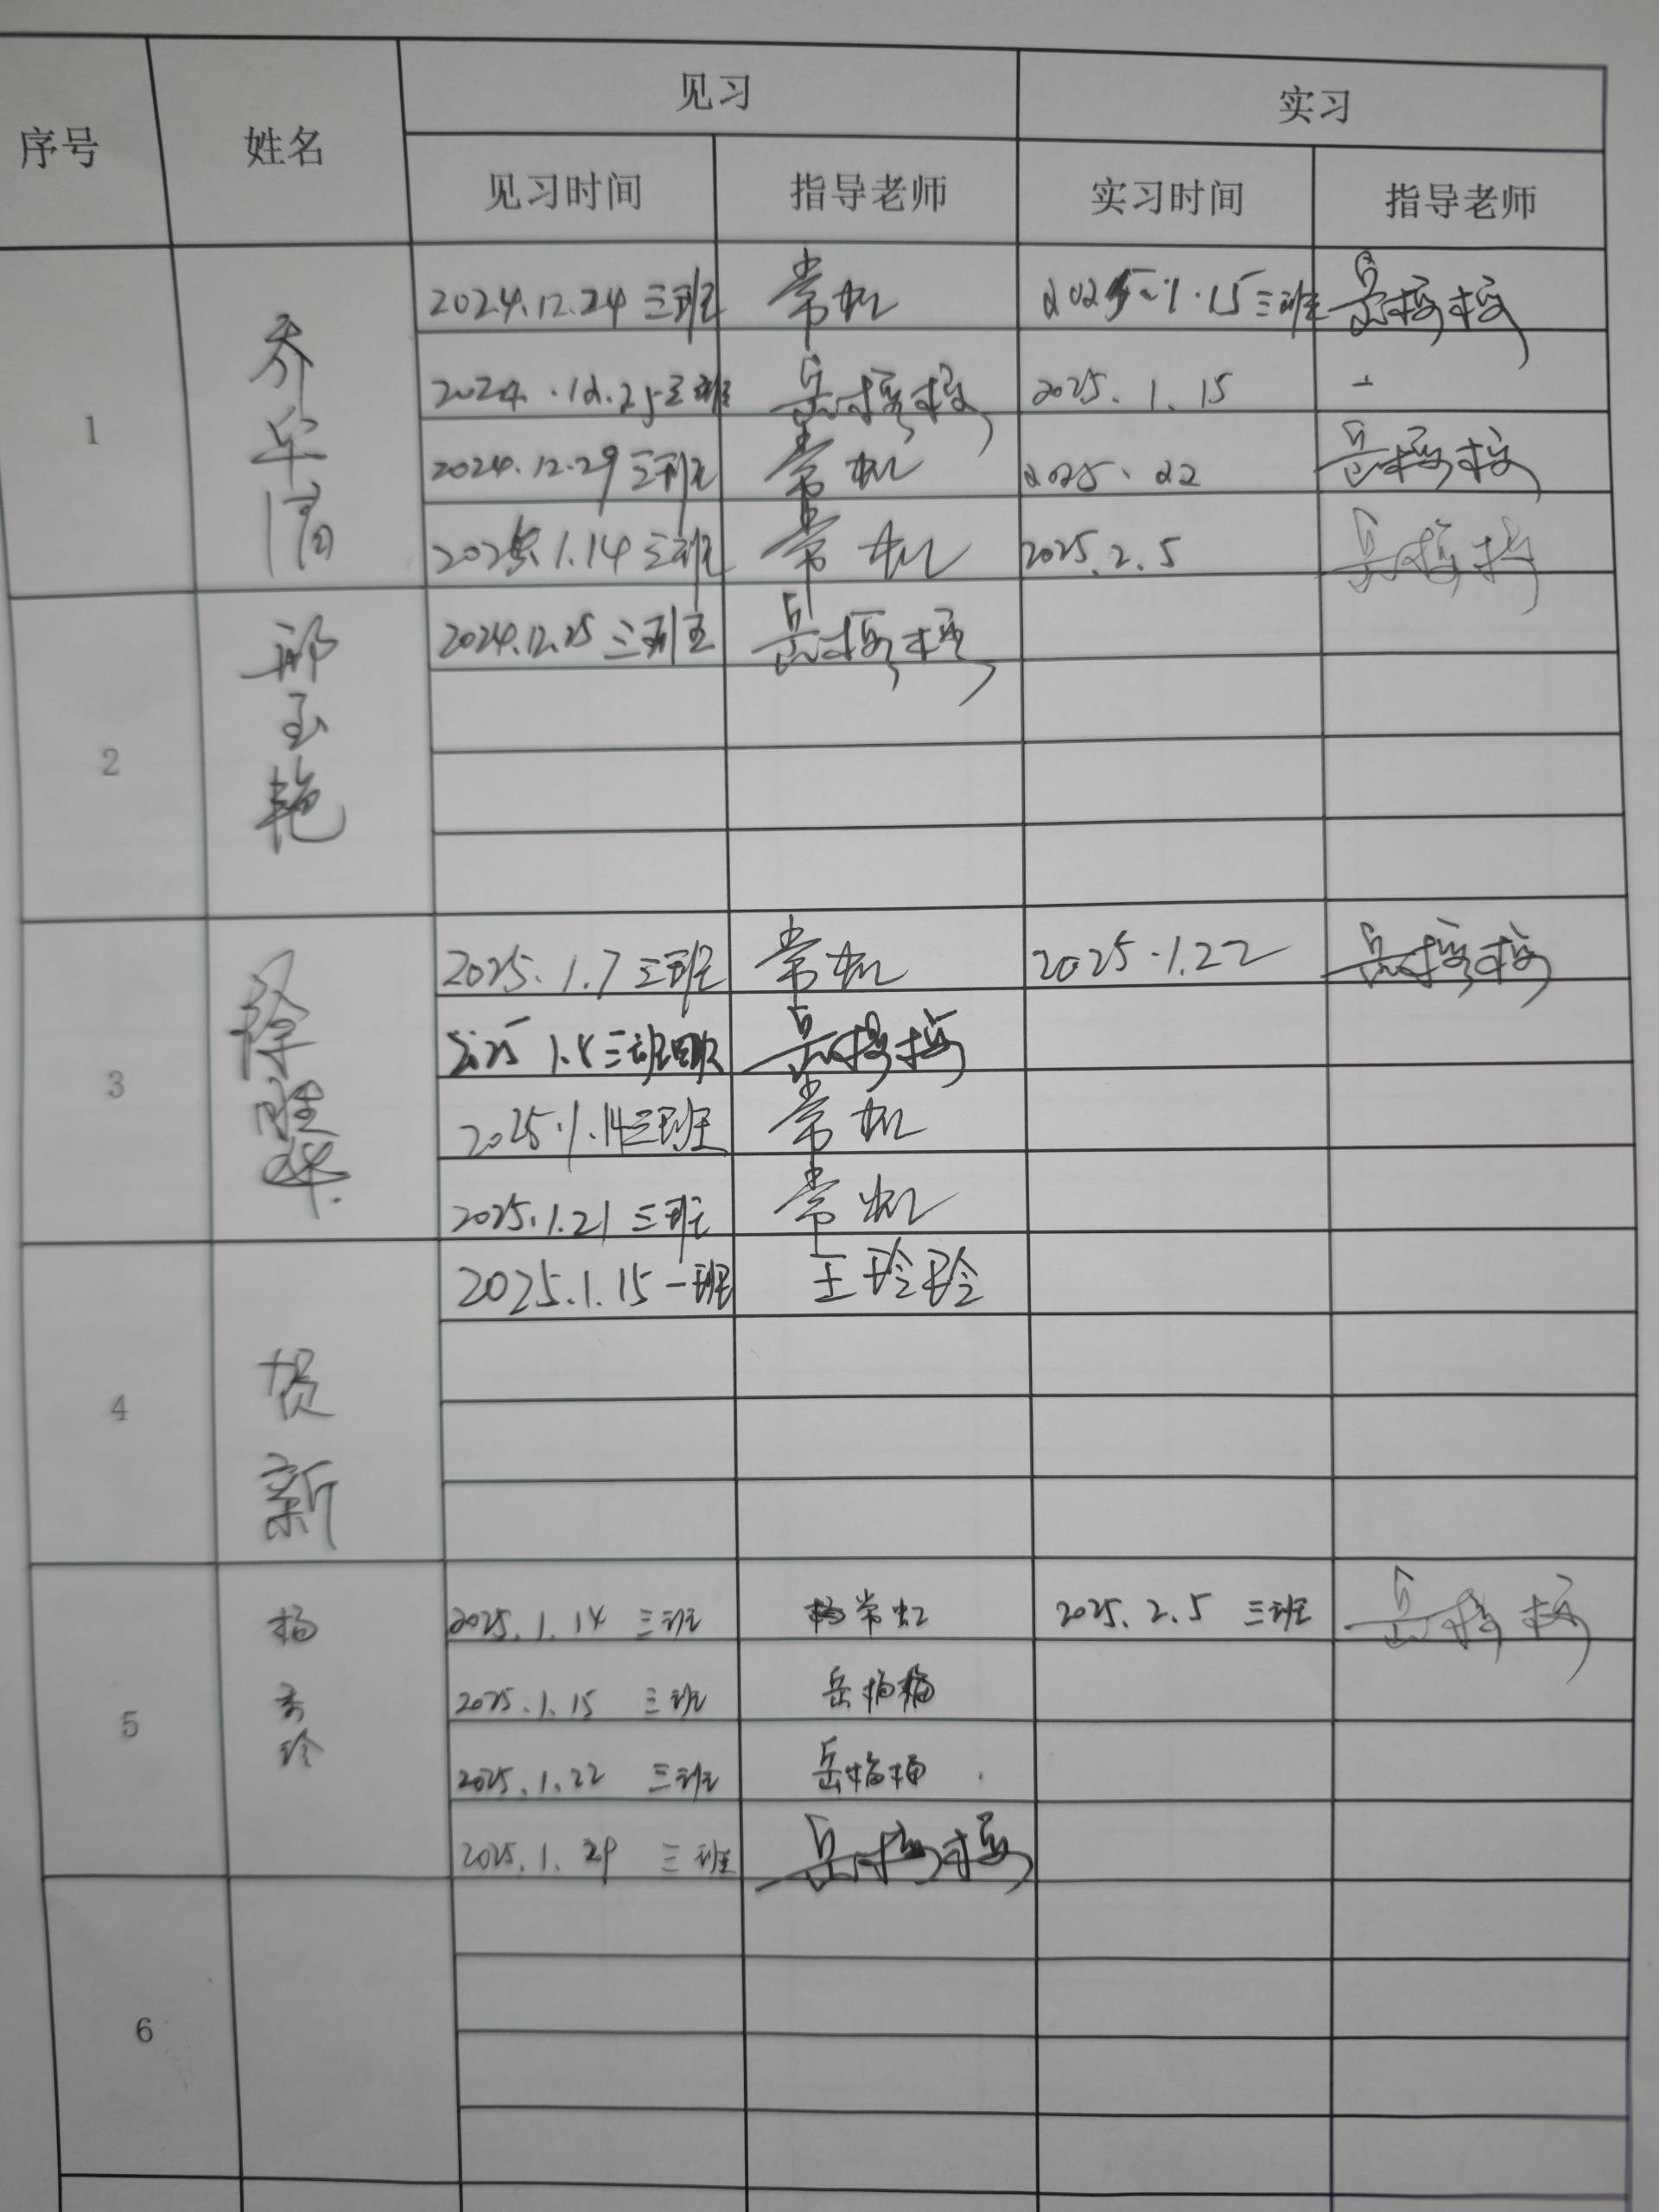 序号 姓名 见习 实习
见习时间 指导老师 实习时间 指导老师
1
2024.12.24 三班 常虹 2025.1.15 三班 岳梅梅
2024.12.25 三班 岳梅梅 2025.1.15
2024.12.29 三班 常虹 2025.22 岳梅梅
2025.1.14 三班 常虹 2025.2.5 岳梅梅
2 邢玉艳
2024.12.25 三班 岳梅梅
3
2025.1.7 三班 常虹 2025.1.22 岳梅梅
2025 1.8 三班 岳梅梅
2025.1.14 三班 常虹
2025.1.21 三班 常虹
4 贺新
2025.1.15 一班 王玲玲
5 杨秀玲
2025.1.14 三班 常虹 2025.2.5 三班 岳梅梅
2025.1.15 三班 岳梅梅
2025.1.22 三班 岳梅梅
2025.1.29 三班 岳梅梅
6